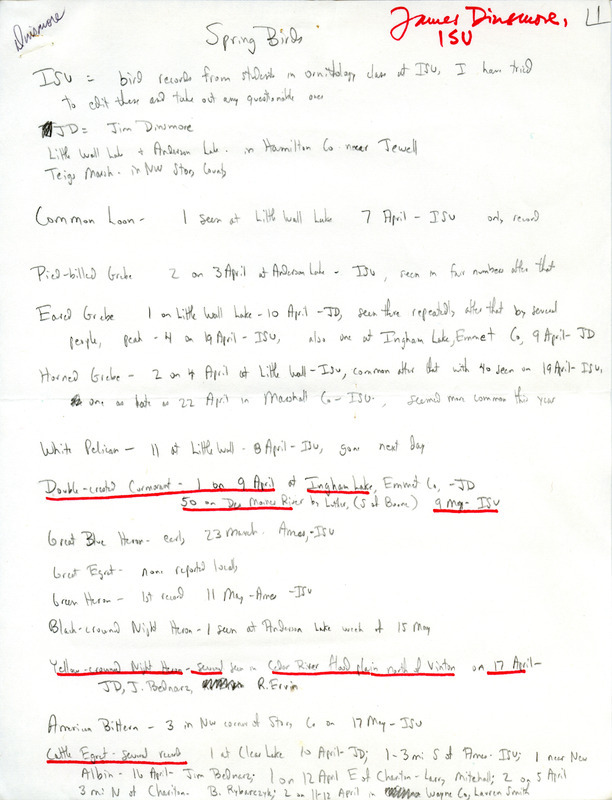 Dinsmore
James Dinsmore,
ISU
1
Spring Birds
ISU = bird records from students in ornithology class at ISU, I have tried
to edit these and take out any questionable ones
JD = Jim Dinsmore
Little Wall Lake + Anderson Lake - in Hamilton Co near Jewell
Teigs Marsh - in NW Story County
Common Loon - 1 seen at Little Wall Lake 7 April - ISU only record
Pied-billed Grebe 2 on 3 April at Anderson Lake - ISU, seen in fair numbers after that
Eared Grebe 1 on Little Wall Lake - 10 April - JD, seen there repeatedly after that by several
people, peak - 4 on 19 April - ISU, also one at Ingham Lake, Emmet Co, 9 April - JD
Horned Grebe - 2 on 4 April at Little Wall - ISU, common after that with 40 seen on 19 April - ISU,
one as late as 22 April in Marshall Co - ISU., seemed more common this year
White Pelican - 11 at Little Wall - 8 April - ISU, gone next day
Double-crested Cormorant - 1 on 9 April at Ingham Lake, Emmet Co, - JD
50 on Des Moines River by Luther, (S of Boone) 9 May - ISU
Great Blue Heron - early 23 March - Ames, - ISU
Great Egret - none reported locally
Green Heron - 1st record 11 May - Ames - ISU
Black-crowned Night Heron - 1 seen at Anderson Lake week of 15 May
Yellow-crowned Night Heron - several seen in Cedar River flood plain north of Vinton on 17 April -
JD, J. Bednarz, R. Ervin
American Bittern - 3 in NW corner of Story Co on 17 May - ISU
Cattle Egret - several records 1 at Clear Lake 10 April - JD; 1-3 mi S of Ames - ISU; 1 near New
Albin - 16 April - Jim Bednarz; 1 on 12 April E of Chariton - Larry Mitchell; 2 on 5 April
3 mi N of Chariton. B. Rybarczyk; 2 on 11-12 April in Wayne Co, Lauren Smith